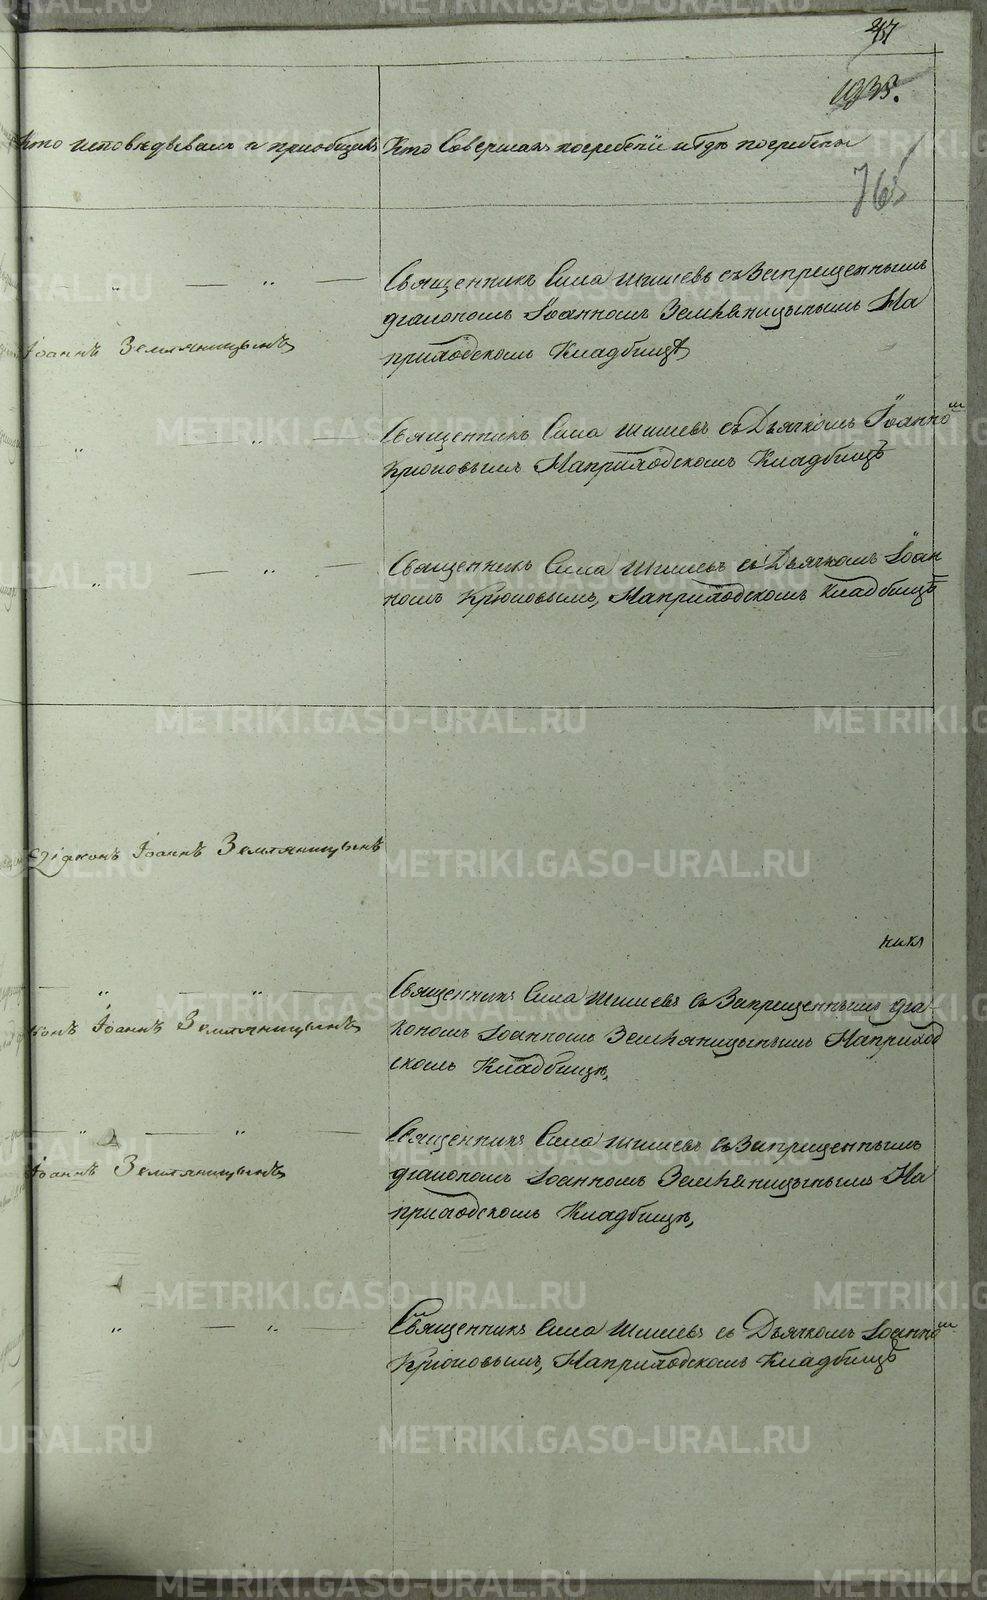 Кто исповѣдывалъ и приобщалъ
Кто Совершалъ погребенїе и гдѣ погребены
Священникъ Сила Шишевъ съ Запрещеннымъ
дїакономъ Іоанномъ Земляницынымъ На
приходскомъ Кладбищѣ
Іоаннъ Земляницынъ
Священникъ Сила Шишевъ съ Дьячкомъ Іоанно м
Крюковымъ Наприходскомъ Кладбищѣ
Священникъ Сила Шишевъ съ Дьячкомъ Іоан
номъ Крюковымъ, Наприходскомъ Кладбищѣ
дїаконъ Іоаннъ Земляницынъ
Священникъ Сила Шишевъ съ Запрещеннымъ дїа-
кономъ Іоанномъ Земляницынымъ Наприход
скомъ Кладбищѣ,
конъ Іоаннъ Земляницынъ
Священникъ Сила Шишевъ съ Запрещеннымъ
дїакономъ Іоанномъ Земляницынымъ На
приходскомъ Кладбищѣ,
Іоаннъ Земляницынъ
Священникъ Сила Шишевъ съ Дьячкомъ Іоанно м
Крюковымъ, Наприходскомъ Кладбищѣ
METRIKI.GASO-URAL.RU